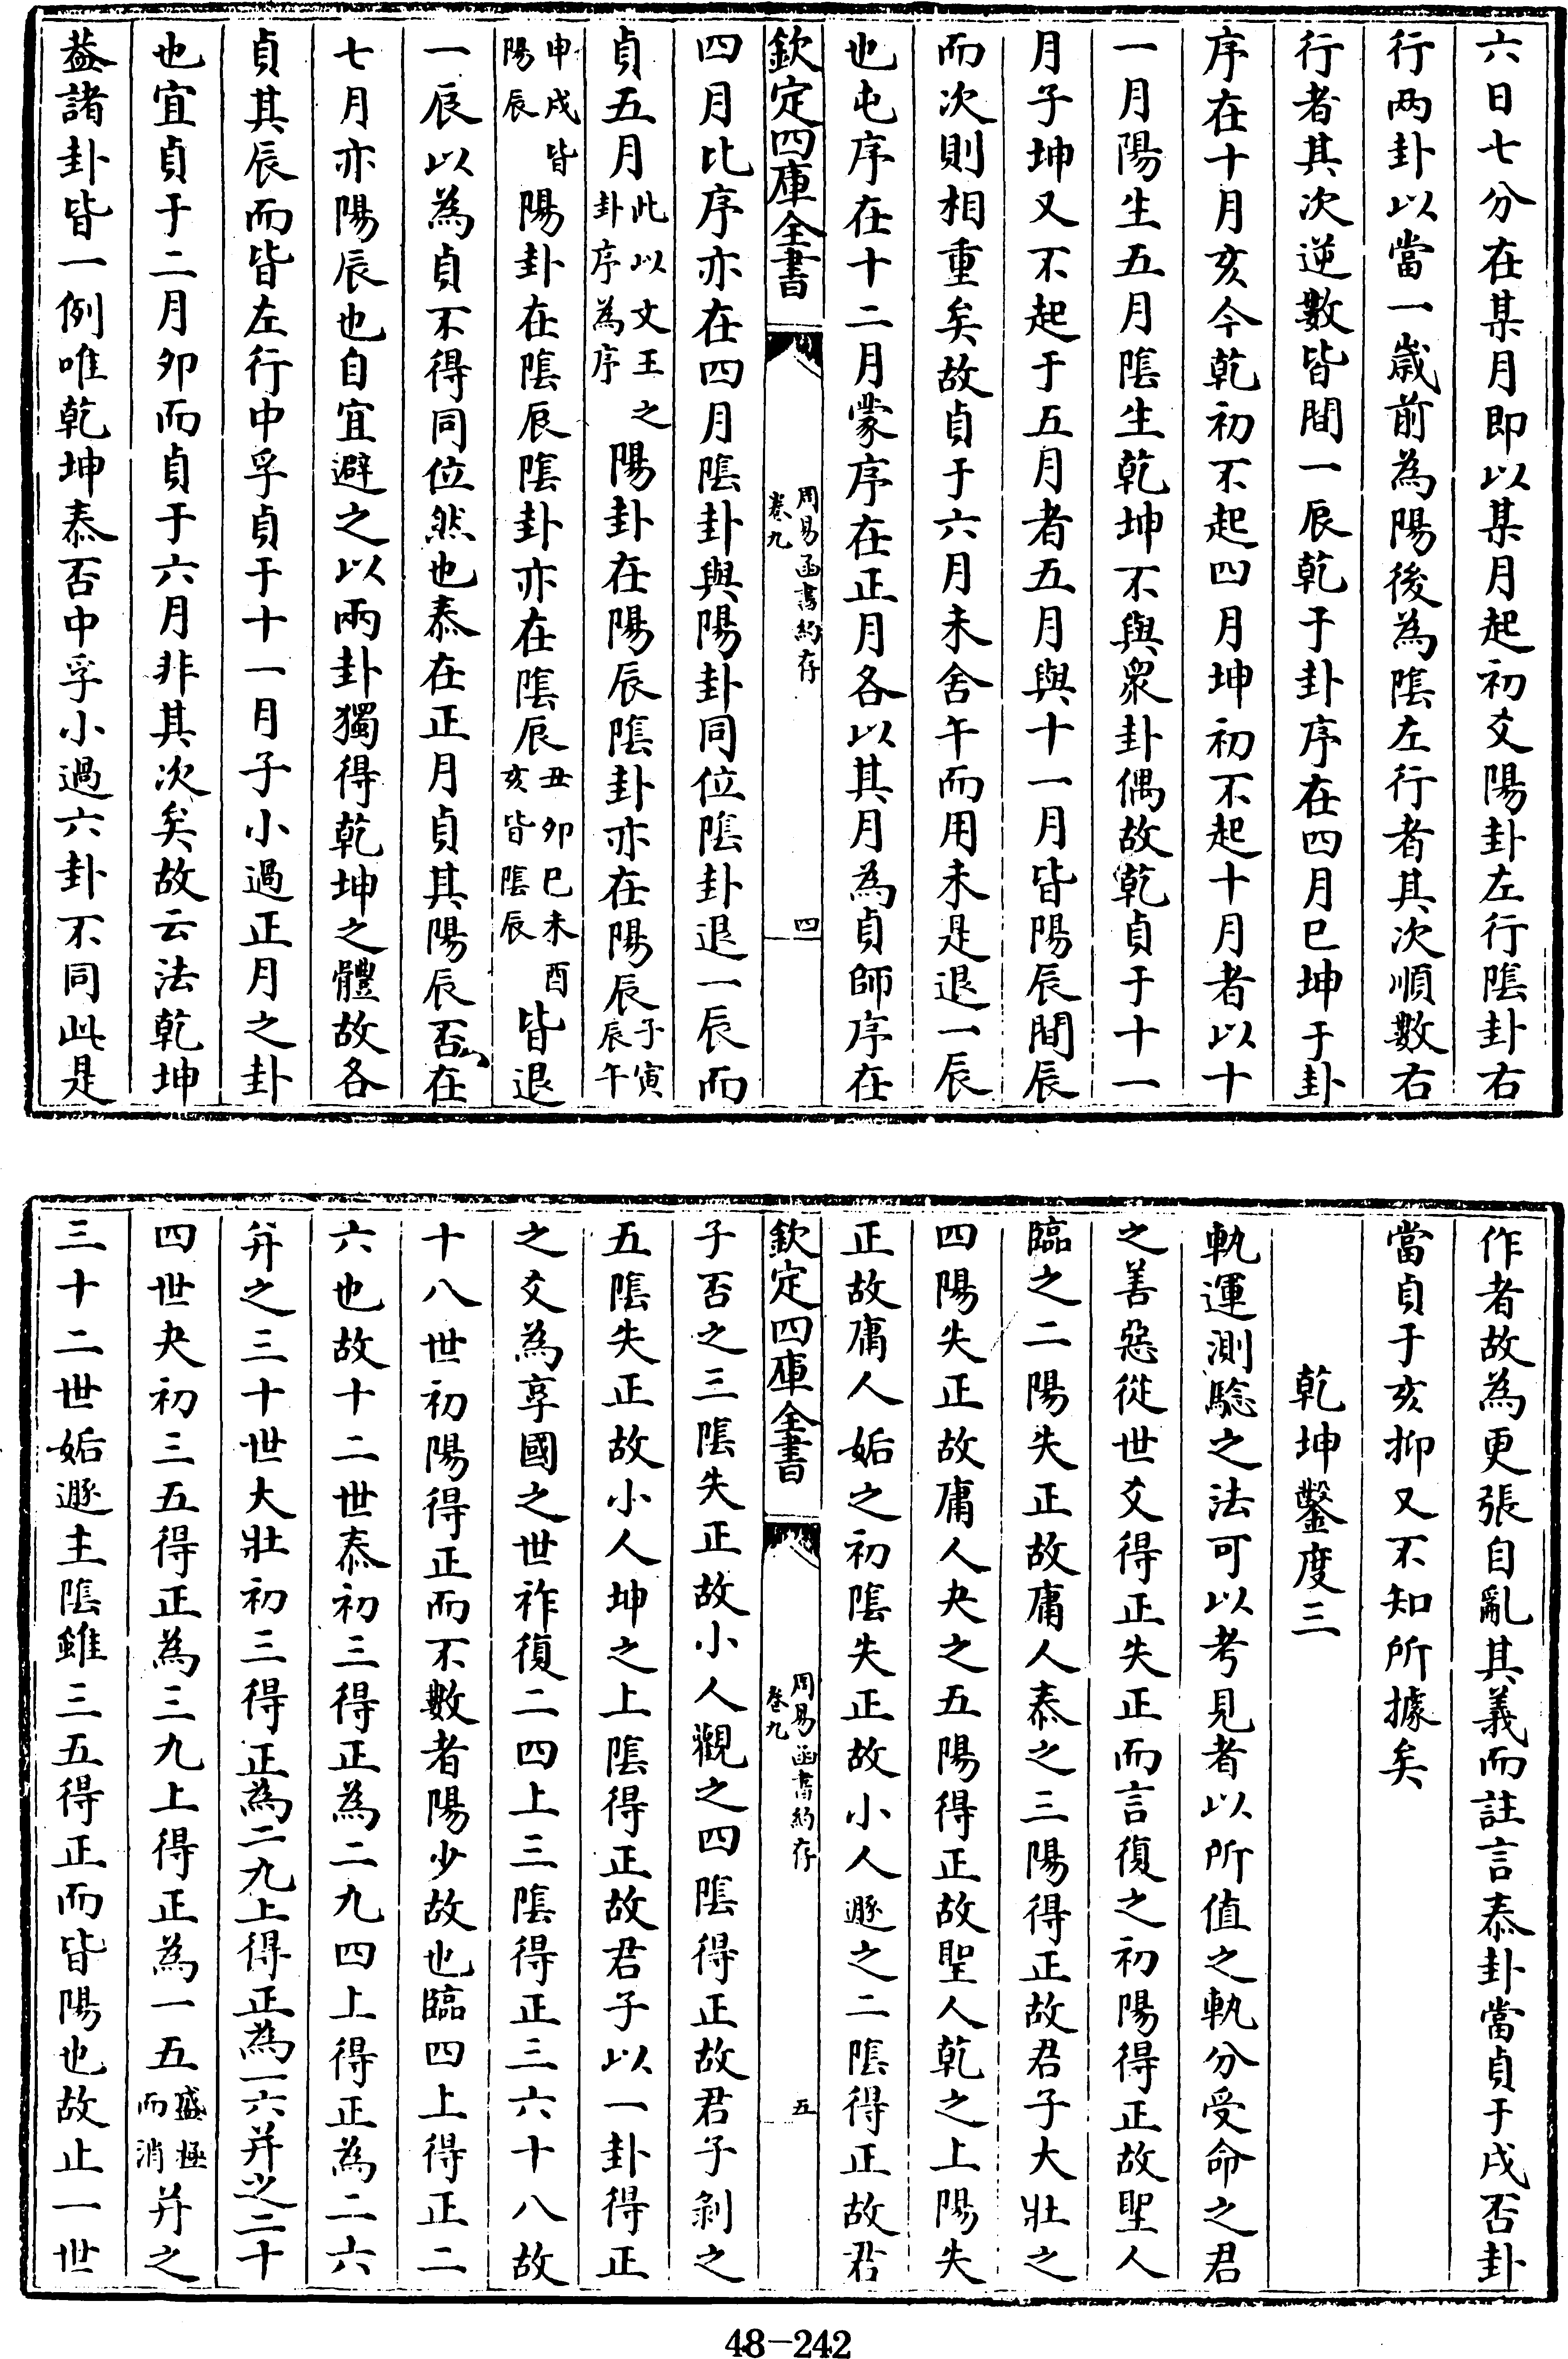 六日七分在某月即以某月起初爻陽卦左行隂卦右
行兩卦以當一歲前為陽後為隂左行者其次順數右
行者其次逆數皆間一辰乾于卦序在四月巳坤于卦
序在十月亥今乾初不起四月坤初不起十月者以十
一月陽生五月隂生乾坤不與衆卦偶故乾貞于十一
月子坤又不起于五月者五月與十一月皆陽辰間辰
而次則相重矣故貞于六月未舍午而用未是退一辰
也屯序在十二月蒙序在正月各以其月為貞師序在
欽定四庫全書
周易函書約存
卷九
四
四月比序亦在四月隂卦與陽卦同位隂卦退一辰而
貞五月此以文王之卦序為序陽卦在陽辰隂卦亦在陽辰子寅辰午
申戌皆陽辰陽卦在隂辰隂卦亦在隂辰丑卯巳未酉亥皆隂辰皆退
一辰以為貞不得同位然也泰在正月貞其陽辰否在
七月亦陽辰也自宜避之以兩卦獨得乾坤之體故各
貞其辰而皆左行中孚貞于十一月子小過正月之卦
也宜貞于二月卯而貞于六月非其次矣故云法乾坤
葢諸卦皆一例唯乾坤泰否中孚小過六卦不同此是
作者故為更張自亂其義而註言泰卦當貞于戌否卦
當貞于亥抑又不知所據矣
乾坤鑿度三
軌運測驗之法可以考見者以所值之軌分受命之君
之善惡從世爻得正失正而言復之初陽得正故聖人
臨之二陽失正故庸人泰之三陽得正故君子大壯之
四陽失正故庸人夬之五陽得正故聖人乾之上陽失
正故庸人姤之初隂失正故小人遯之二隂得正故君
欽定四庫全書
周易函書約存
卷九
五
子否之三隂失正故小人觀之四隂得正故君子剝之
五隂失正故小人坤之上隂得正故君子以一卦得正
之爻為享國之世祚復二四上三隂得正三六十八故
十八世初陽得正而不數者陽少故也臨四上得正二
六也故十二世泰初三得正為二九四上得正為二六
并之三十世大壯初三得正為二九上得正為一六并之二十
四世夬初三五得正為三九上得正為一五盛極而消并之
三十二世姤遯主隂雖三五得正而皆陽也故止一世
48-242